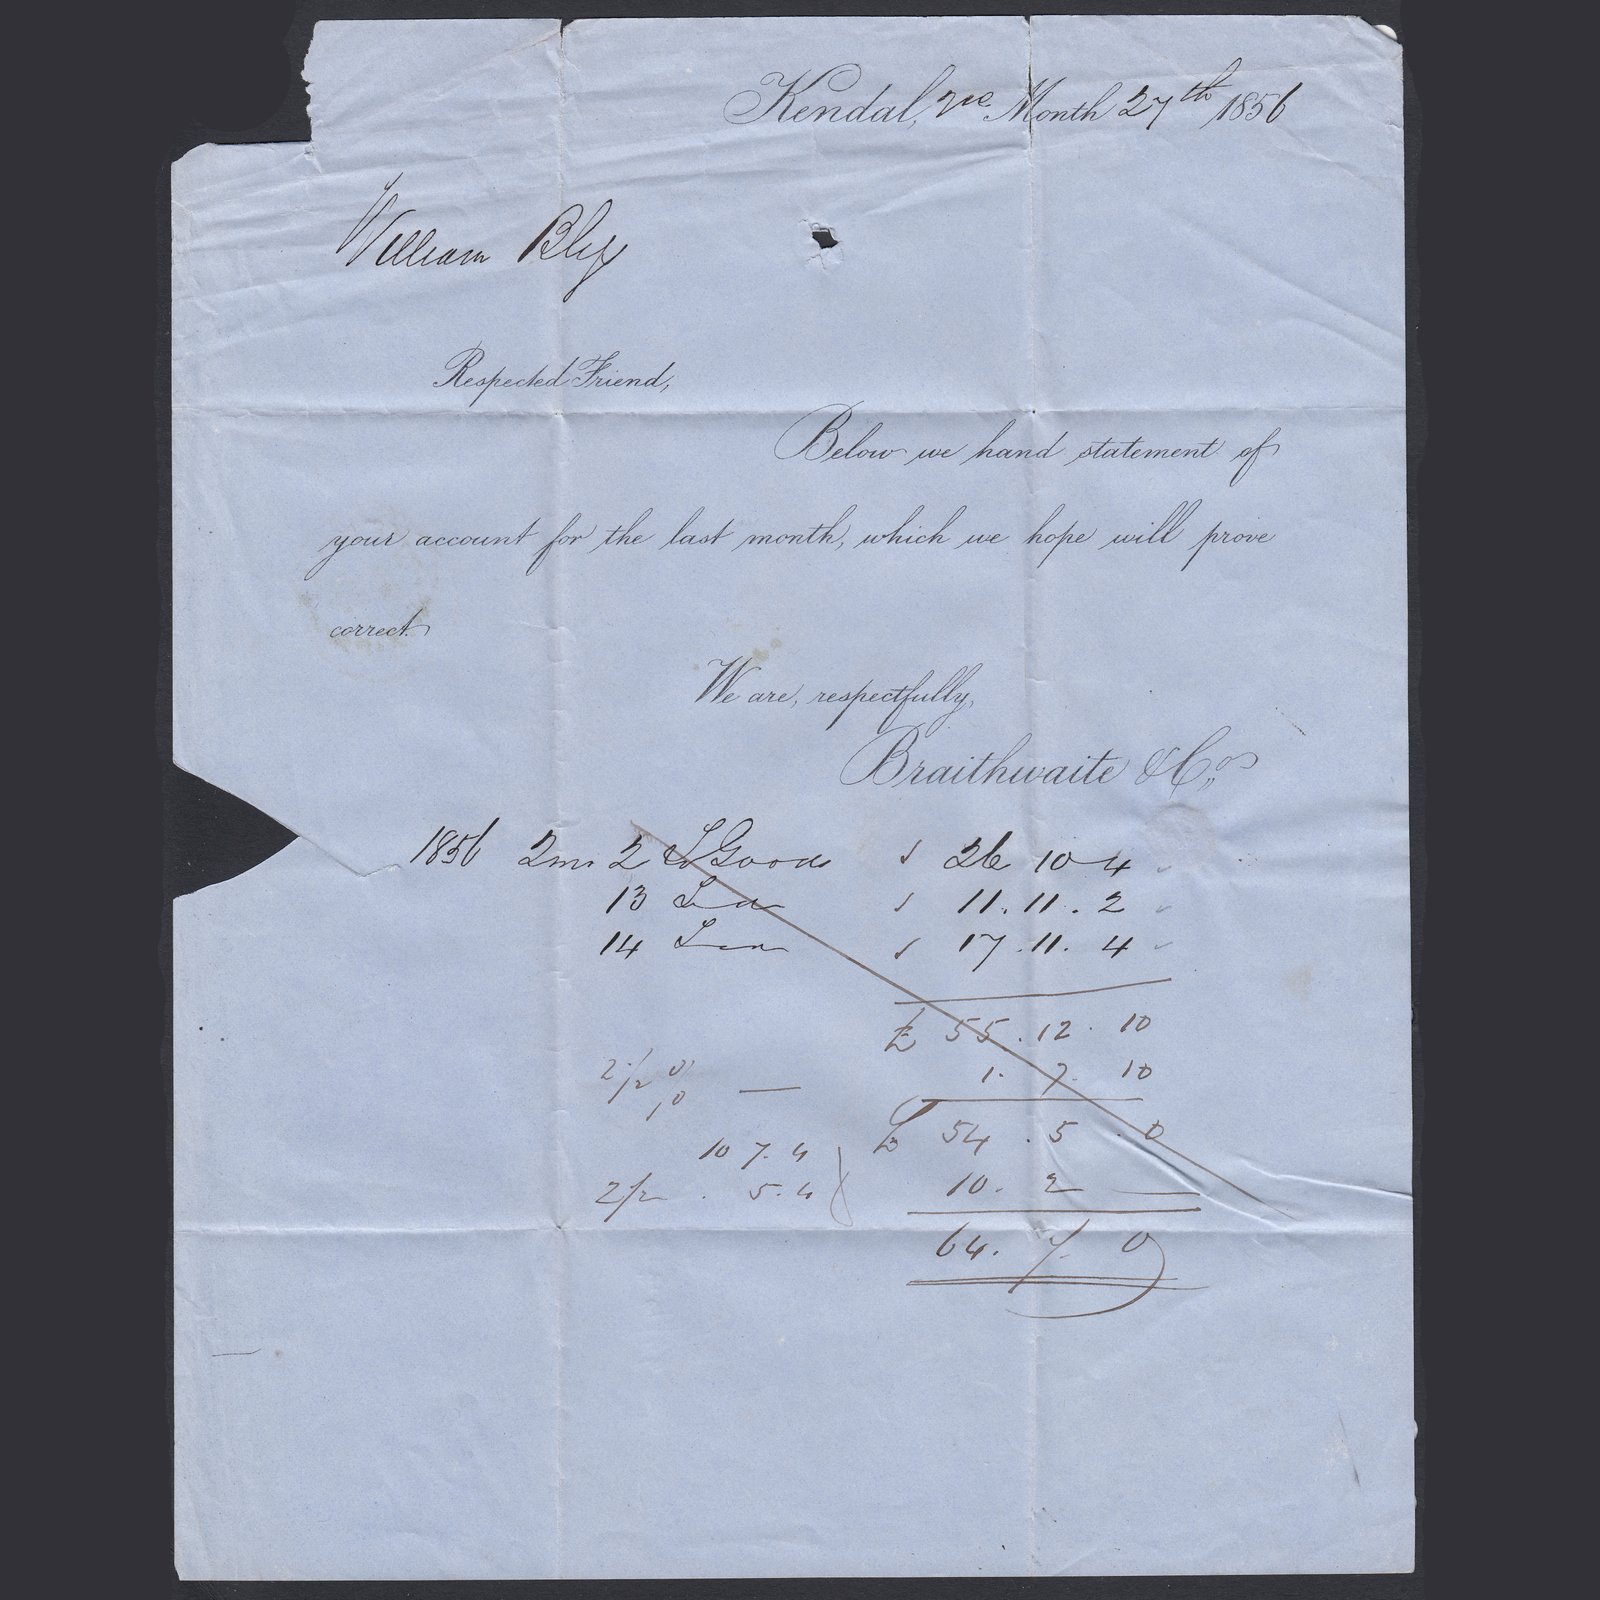 Kendal, 2nd Month 27th 1856
William Bly
Respected Friend,
Below we hand statement of
your account for the last month, which we hope will prove
correct.
We are, respectfully,
Braithwaite & Cos
1856 2mo 2 To Goods 26 10 4
13 11.11.2
14 17.11.4
£ 55.12.10
2 1/2 % — 1.7.10
£ 54.5.0
10 7.4
2 1/2 . 5.4 10.2 —
64.7.0